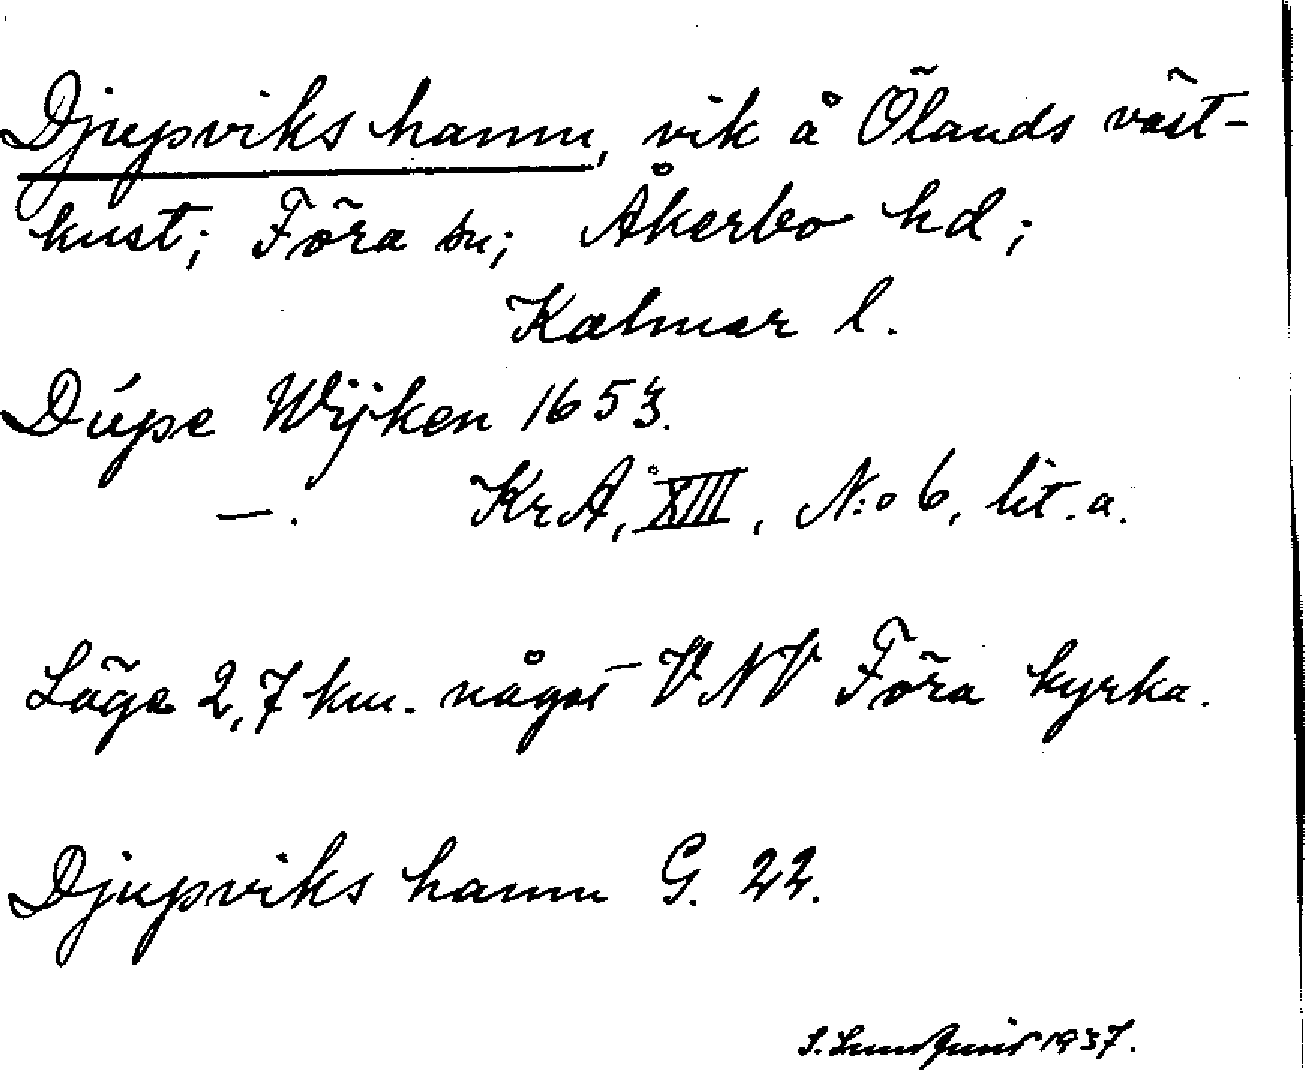 Djupviks hamn, vik å Ölands väst-
kust; Föra sn; Åkerbo hd;
Kalmar l.
Dúpe Wijken 1653.
—. KrA, XIII, N:o 6, lit. a.
Läge 2,7 km. något VNV Föra kyrka.
Djupviks hamn G. 22.
S. Lundquist 1937.